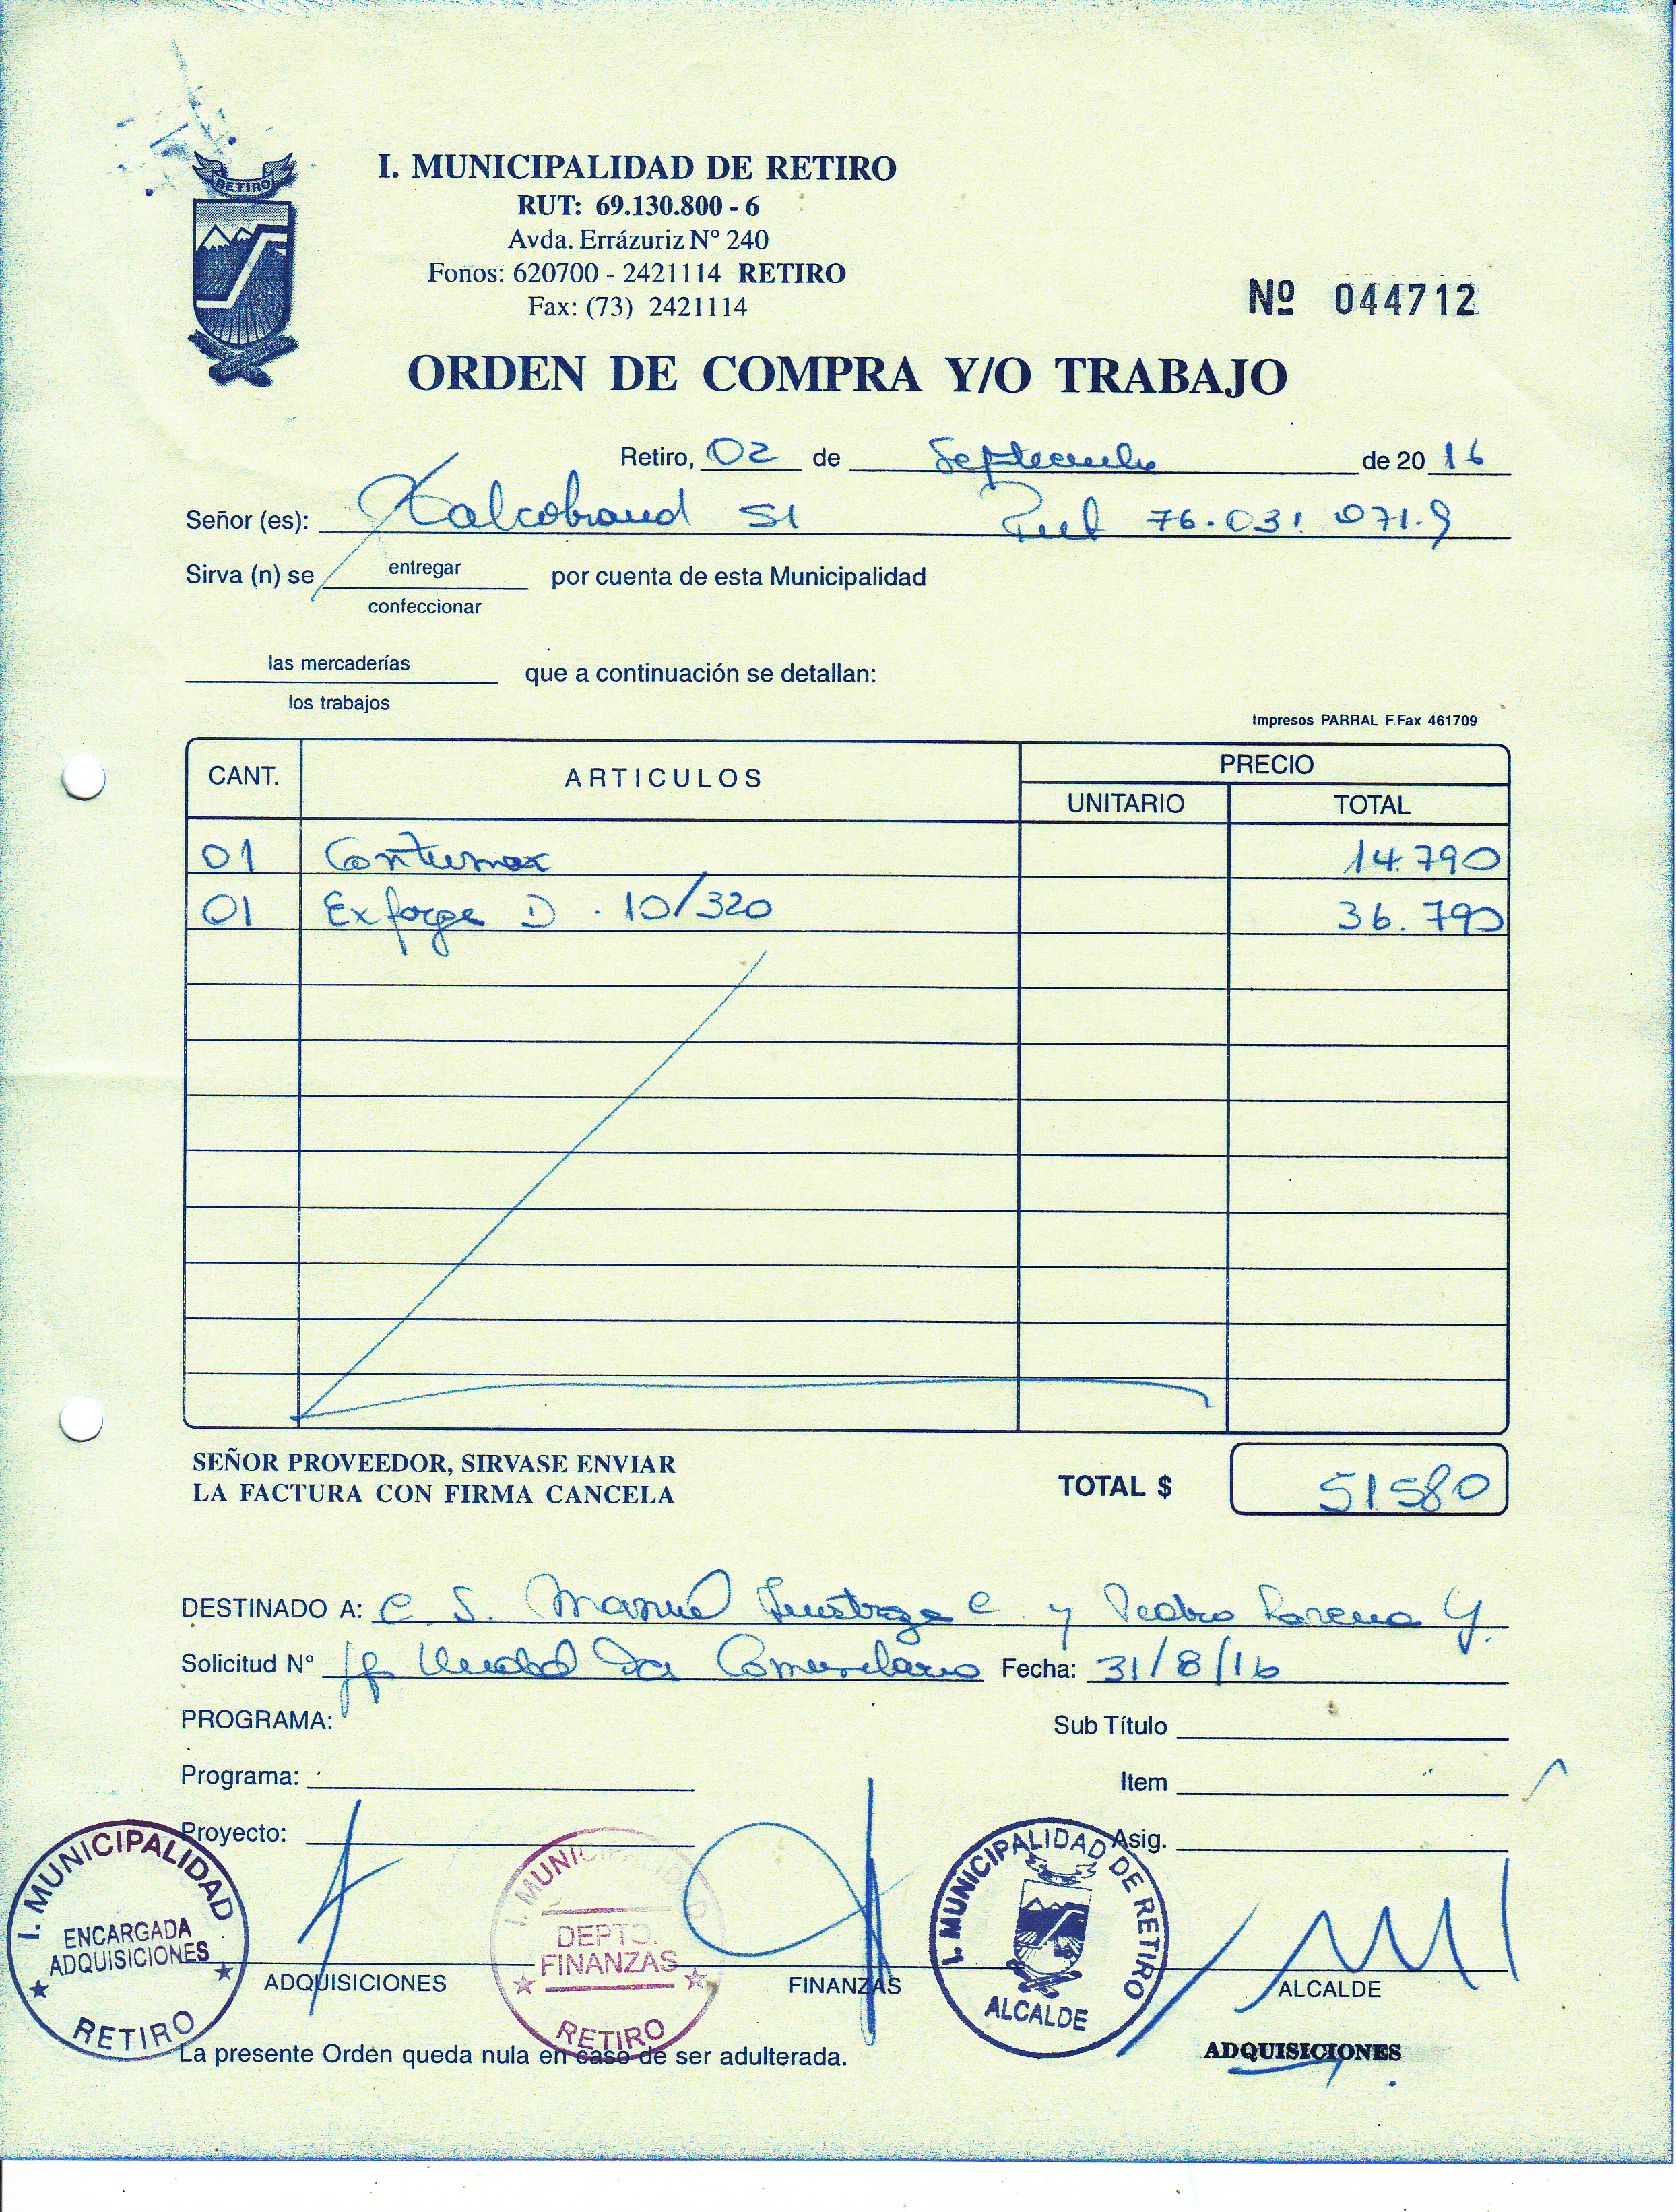 RETIRO
I. MUNICIPALIDAD DE RETIRO
RUT: 69.130.800 - 6
Avda. Errázuriz Nº 240
Fonos: 620700 - 2421114 RETIRO
Fax: (73) 2421114
Nº 044712
ORDEN DE COMPRA Y/O TRABAJO
Retiro, 02 de Septiembre de 20 16
Señor (es): Salcobrand SA Rut 76.031.071-9
Sirva (n) se entregar por cuenta de esta Municipalidad
confeccionar
las mercaderías que a continuación se detallan:
los trabajos
Impresos PARRAL F.Fax 461709
CANT. ARTICULOS PRECIO
UNITARIO TOTAL
01 Contumax 14.790
01 Exforge D . 10/320 36.790
SEÑOR PROVEEDOR, SIRVASE ENVIAR
LA FACTURA CON FIRMA CANCELA
TOTAL $ 51.580
DESTINADO A: C. S. Manuel C. y Pedro G.
Solicitud Nº Unidad Comunitario Fecha: 31/8/16
PROGRAMA: Sub Título
Programa: Item
Proyecto: Asig.
I. MUNICIPALIDAD
ENCARGADA
ADQUISICIONES
RETIRO
ADQUISICIONES
I. MUNICIPALIDAD
DEPTO.
FINANZAS
RETIRO
FINANZAS
I. MUNICIPALIDAD DE RETIRO
ALCALDE
ALCALDE
La presente Orden queda nula en caso de ser adulterada.
ADQUISICIONES